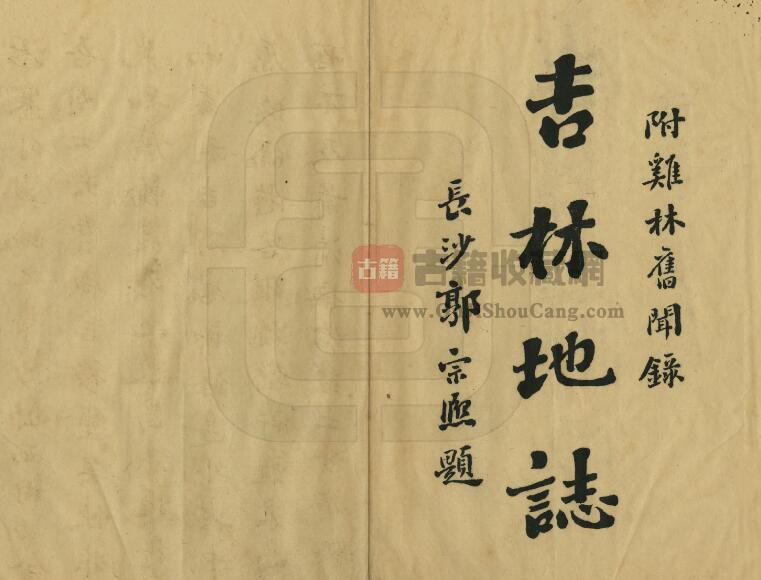 附雞林舊聞錄
吉林地誌
長沙郭宗熙題
古籍
古籍收藏網
www.GujiShouCang.com